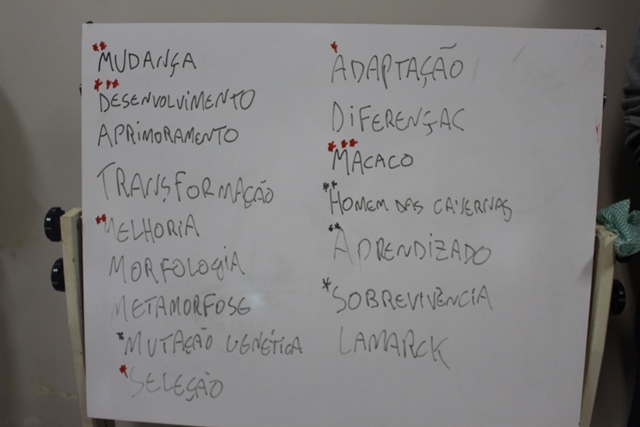 ** MUDANÇA
*** DESENVOLVIMENTO
APRIMORAMENTO
TRANSFORMAÇÃO
** MELHORIA
MORFOLOGIA
METAMORFOSE
* MUTAÇÃO GENÉTICA
* SELEÇÃO
* ADAPTAÇÃO
DIFERENÇAC
*** MACACO
** HOMEM DAS CAVERNAS
** APRENDIZADO
* SOBREVIVÊNCIA
LAMARCK